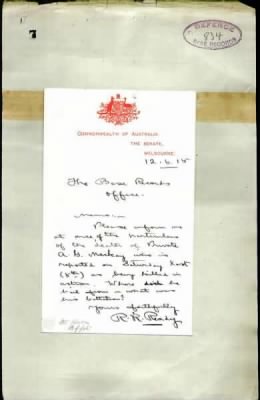 7
DEFENCE
834
BASE RECORDS
COMMONWEALTH OF AUSTRALIA
THE SENATE,
MELBOURNE.
12.6.15
The Base Records
Office.
Memo.
Please inform me
at once of the particulars
of the death of Private
A G Mackay who is
reported on Saturday last
(5th) as being killed in
action. Where did he
hail from & what was
his battalion?
Yours faithfully